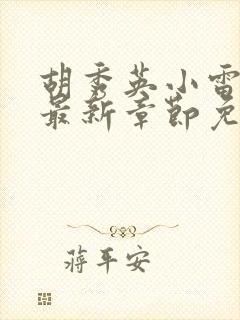 胡秀英小雷
最新章节免
蒋平安